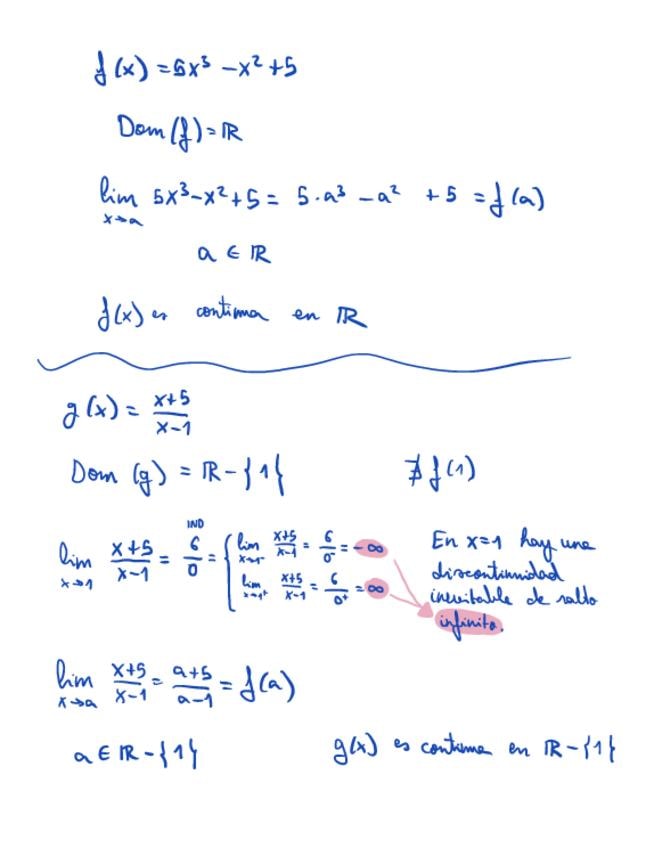 f(x) = 5x³ - x² + 5
Dom(f) = ℝ
lim x→a 5x³ - x² + 5 = 5·a³ - a² + 5 = f(a)
a ∈ ℝ
f(x) es continua en ℝ
g(x) = (x+5)/(x-1)
Dom(g) = ℝ - {1}
∄ f(1)
lim x→1 (x+5)/(x-1) = 6/0 IND = { lim x→1⁻ (x+5)/(x-1) = 6/0⁻ = -∞
lim x→1⁺ (x+5)/(x-1) = 6/0⁺ = ∞
En x=1 hay una
discontinuidad
inevitable de salto
infinito.
lim x→a (x+5)/(x-1) = (a+5)/(a-1) = f(a)
a ∈ ℝ - {1}
g(x) es continua en ℝ - {1}